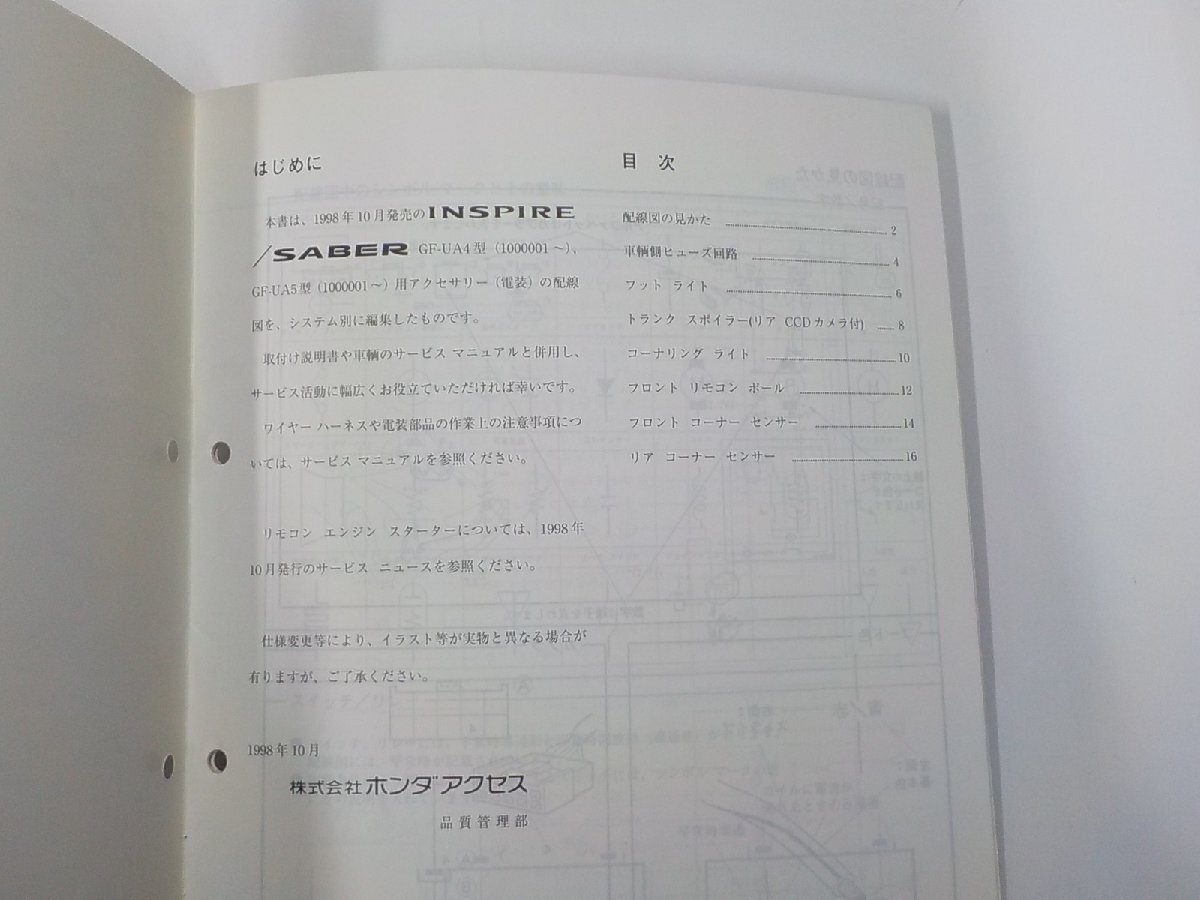 はじめに
本書は、1998年10月発売のINSPIRE
/SABER GF-UA4型（1000001～）、
GF-UA5型（1000001～）用アクセサリー（電装）の配線
図を、システム別に編集したものです。
取付け説明書や車輌のサービス マニュアルと併用し、
サービス活動に幅広くお役立ていただければ幸いです。
ワイヤー ハーネスや電装部品の作業上の注意事項につ
いては、サービス マニュアルを参照ください。
リモコン エンジン スターターについては、1998年
10月発行のサービス ニュースを参照ください。
仕様変更等により、イラスト等が実物と異なる場合が
有りますが、ご了承ください。
1998年10月
株式会社ホンダアクセス
品質管理部
目 次
配線図の見かた 2
車輌側ヒューズ回路 4
フット ライト 6
トランク スポイラー(リア CCDカメラ付) 8
コーナリング ライト 10
フロント リモコン ポール 12
フロント コーナー センサー 14
リア コーナー センサー 16